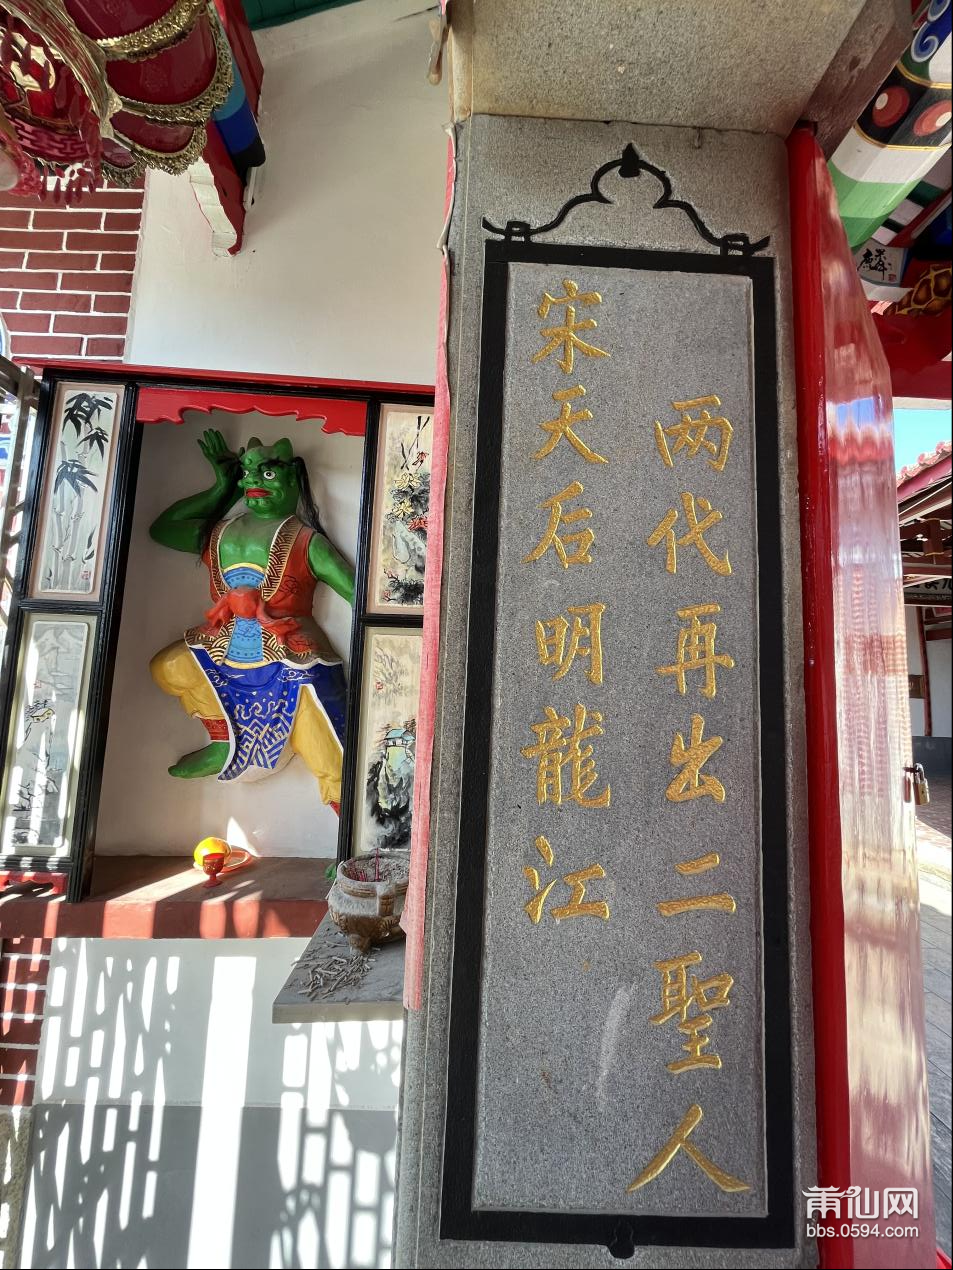 宋天后明龍江
两代再出二聖人
莆仙网
bbs.0594.com